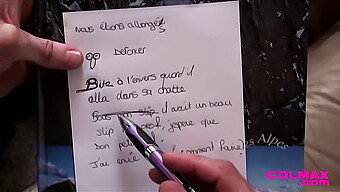 Nous étions allongés
Détoner
Bite à l'envers quand il
alla dans sa chatte
Pas un slip il avait un beau
slip
que
Don
J'ai envie (comment faire)
Alpes
COLMAX
.com